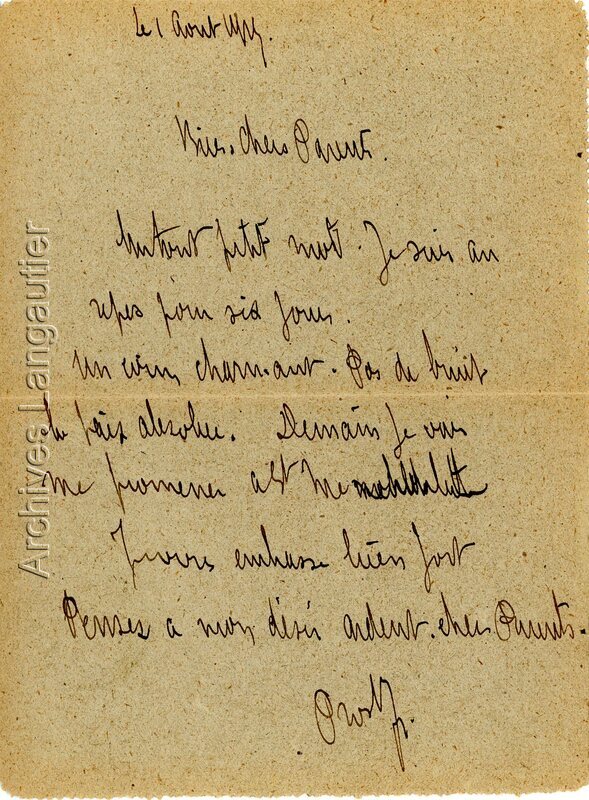 Le 1 Aout
Bien chers Parents.
Un tout petit mot. Je suis au
repos pour six jours.
Un coin charmant. Pas de bruit
la paix absolue. Demain je vais
me promener a St Me
Je vous embrasse bien fort
Pensez à mon désir ardent. chers Parents.
Archives Langautier